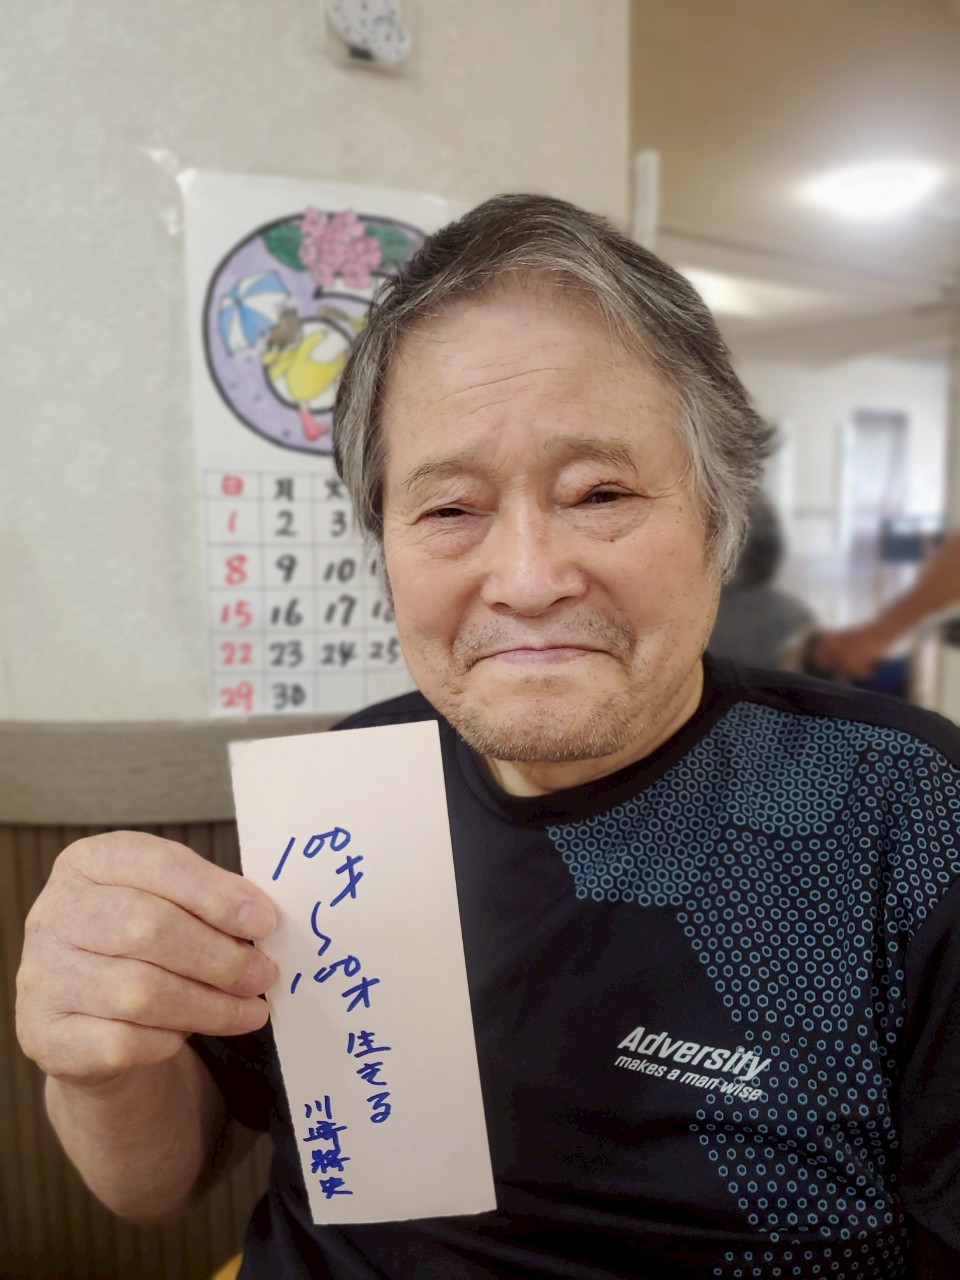 日 月 火
1 2 3
8 9 10
15 16 17 18
22 23 24 25
29 30
100才~100才生きる
川崎將史
Adversity
makes a man wise